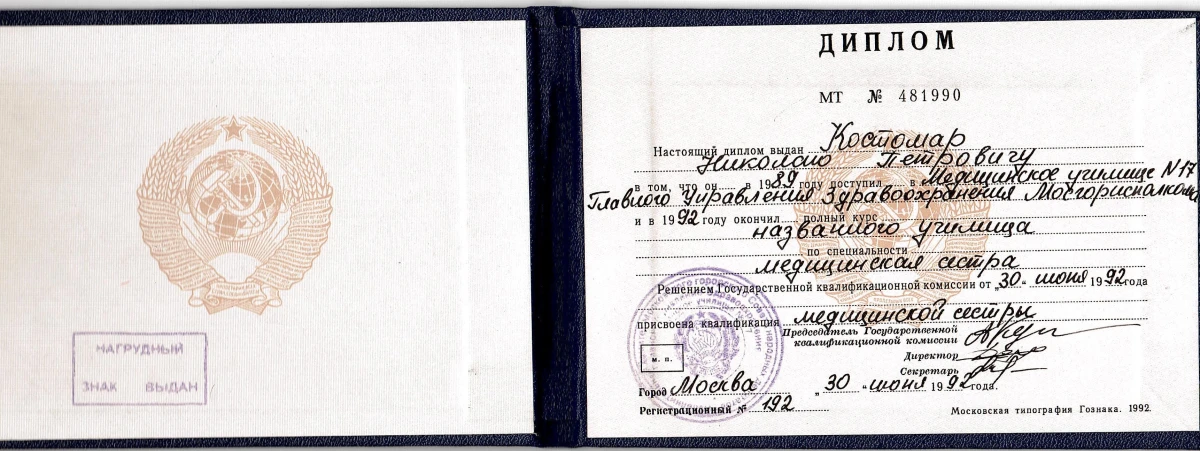 НАГРУДНЫЙ
ЗНАК ВЫДАН
ДИПЛОМ
МТ № 481990
Настоящий диплом выдан Костомар
Николаю Петровичу
в том, что он в 1989 году поступил в Медицинское училище N 17
Главного Управления Здравоохранения Мосгорисполкома
и в 1992 году окончил полный курс
названного училища
по специальности
медицинская сестра
Решением Государственной квалификационной комиссии от „30“ июня 1992 года
присвоена квалификация медицинской сестры
Председатель Государственной
квалификационной комиссии
Директор
Секретарь
м. п.
Город Москва „30“ июня 1992 года.
Регистрационный № 192
Московская типография Гознака. 1992.